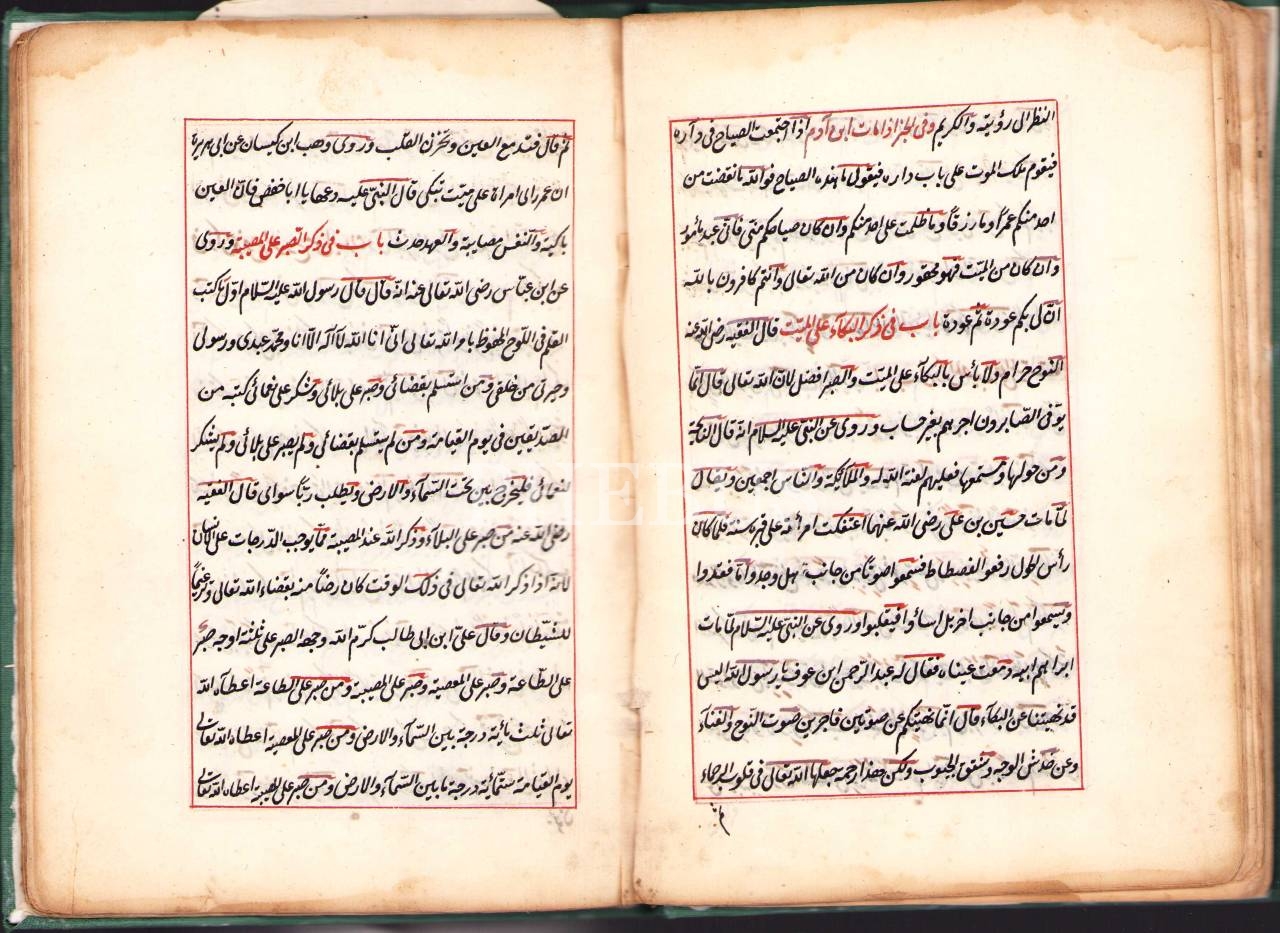 النظر الى رؤيته والكريم وفى الخبر اذا مات ابن آدم اذا اجتمعت الصياح فى داره
فيقوم ملك الموت على باب داره فيقول ما هذه الصياح فوالله ما نقصت من
احد منكم عمرًا ولا رزقًا وما ظلمت على احد منكم وان كان صياحكم منى فانى عبد مأمور
وان كان من الميّت فهو مقهور وان كان من الله تعالى وانتم كافرون بالله
انّ لى بكم عودة ثم عودة باب فى ذكر البكآء على الميّت قال الفقيه رضى الله عنه
النوح حرام ولا بأس بالبكآء على الميّت والصبر افضل لانّ الله تعالى قال انّما
يوفى الصّابرون اجرهم بغير حساب وروى عن النبىّ عليه السلام انّه قال النائحة
ومن حولها ومستمعها فعليهم لعنة الله والملائكة والنّاس اجمعين ويقال
لمّا مات حسين بن على رضى الله عنهما اعتكفت امرأته على قبره سنة فلمّا كان
رأس الحول رفعوا الفسطاط فسمعوا صوتًا من جانب هل وجدوا ما فقدوا
وسمعوا من جانب اخر بل فانقلبوا وروى عن النبىّ عليه السّلام لمّا مات
ابراهيم ابنه دمعت عيناه فقال له عبد الرّحمن ابن عوف يا رسول الله اليس
قد نهيتنا عن البكآء قال انّما نهيتكم عن صوتين فاجرين صوت النّوح والغنآء
وعن خدش الوجوه وشقّ الجيوب ولكن هذا رحمة جعلها الله تعالى فى قلوب الرحمآء
ثم قال
ثم قال القلب وروى وهب ابن كيسان عن ابى هريرة
ان عمر راى امراة على ميّت تبكى قال النبىّ عليه دعها يا ابا حفص فانّ العين
باكية والنفس مصابة والعهد حدث باب فى ذكر الصبر على المصيبة وروى
عن ابن عبّاس رضى الله تعالى عنه انّه قال قال رسول الله عليه السّلام اوّل ما كتب
القلم فى اللّوح المحفوظ بامر الله تعالى انّى انا الله لا آله الّا انا ومحمّد عبدى ورسولى
وخيرتى من خلقى ومن استسلم بقضائى وصبر على بلائى وشكر على نعمائى كتبته من
الصدّيقين فى يوم القيامة ومن لم يستسلم بقضائى ولم يصبر على بلائى ولم يشكر
لنعمائى فليخرج من تحت السّمآء والارض ويطلب ربًّا سوائى قال الفقيه
رضى الله عنه من صبر على البلآء وذكر الله عند المصيبة ممّا يوجب الدّرجات على الانسان
لانّه اذا ذكر الله تعالى فى ذلك الوقت كان رضآ منه بقضاء الله تعالى وترغيمًا
للشيطان وقال علىّ ابن ابى طالب كرّم الله وجهه الصبر على ثلثة اوجه صبر
على الطّاعة وصبر على المعصية وصبر على المصيبة ومن صبر على الطاعة اعطآه الله
تعالى ثلث مائة درجة بين السّمآء والارض ومن صبر على المعصية اعطاه الله تعالى
يوم القيامة ستّمائة درجة ما بين السّمآء والارض ومن صبر على المصيبة اعطاه الله تعالى